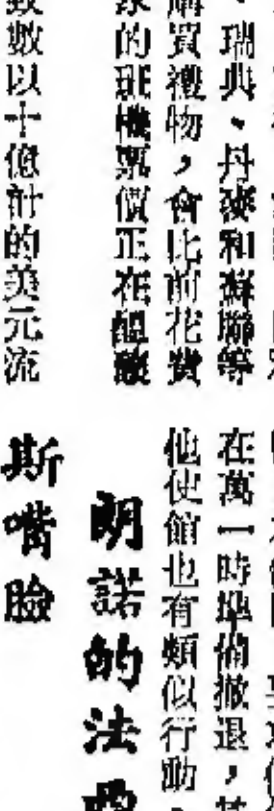 、瑞典、丹麥和蘇聯等
購買禮物，會比前花費
的班機票價正在醞釀
數以十億計的美元流
在萬一時準備撤退，其
他使館也有類似行動
朗諾的法
斯嘴臉